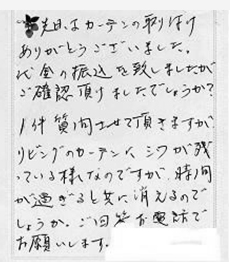 先日はカーテンの取り付け
ありがとうございました。
代金の振込を致しましたが
ご確認頂けましたでしょうか?
1件質問させて頂きますが、
リビングのカーテンに シワが残
っている様なのですが、時間
が過ぎると共に消えるので
しょうか。ご回答お電話で
お願いします。